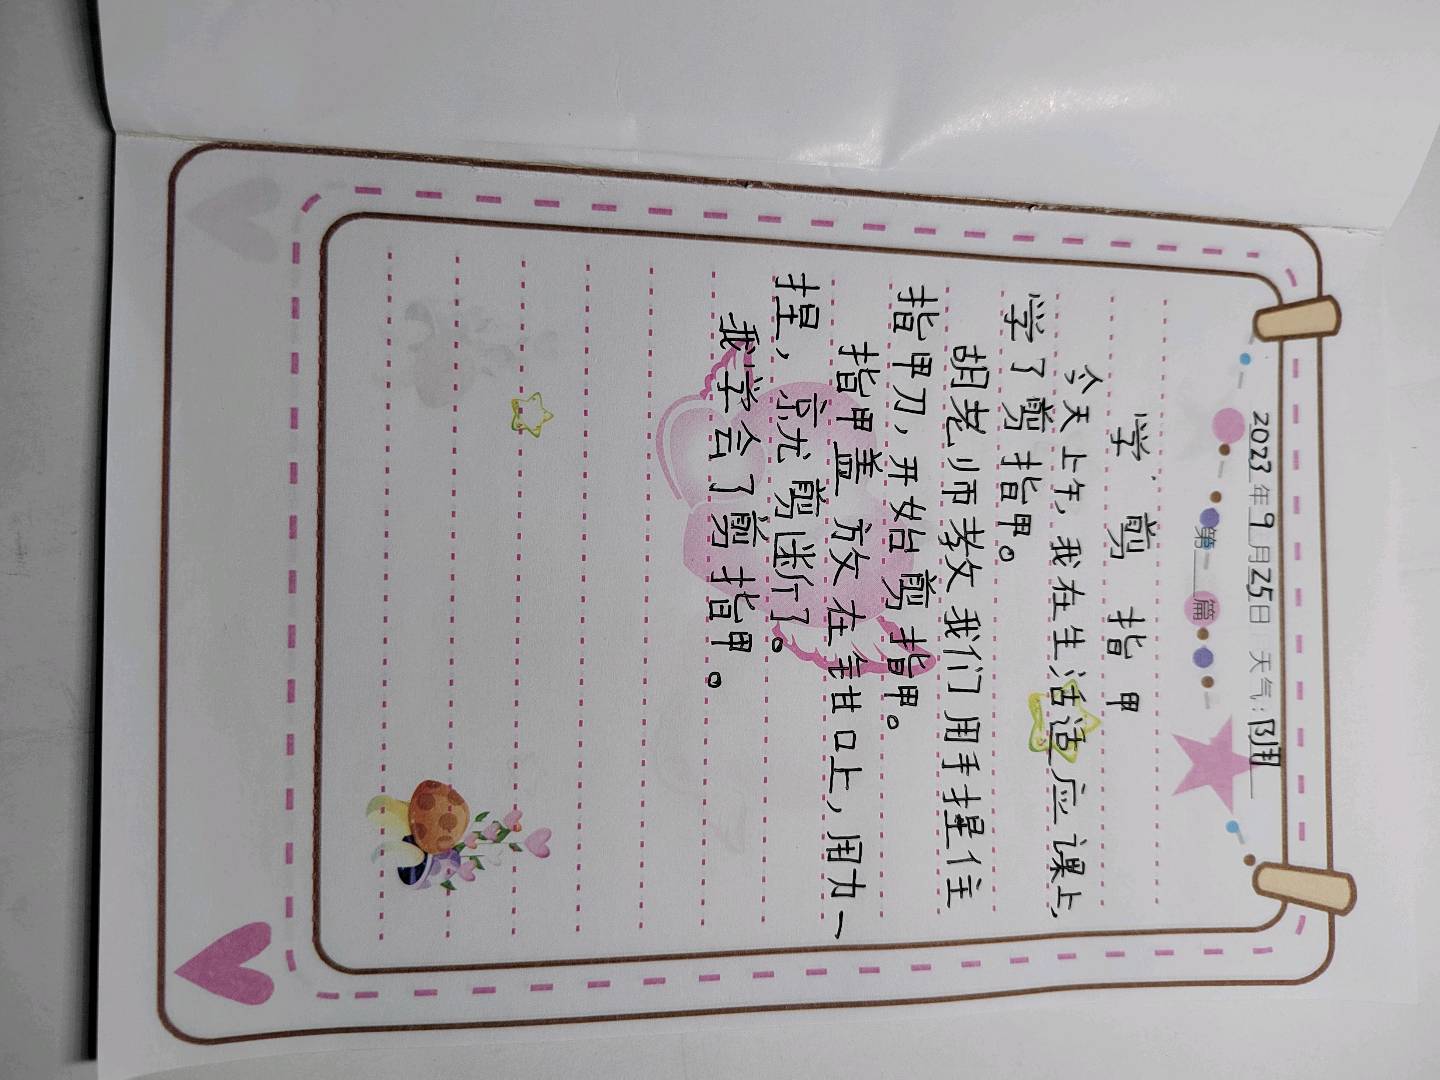 2023年9月25日 天气:阴
第 篇
学剪指甲
今天上午,我在生活适应课上,
学了剪指甲。
胡老师教我们用手捏住
指甲刀,开始剪指甲。
指甲盖放在钳口上,用力一
捏,就剪断了。
我学会了剪指甲。